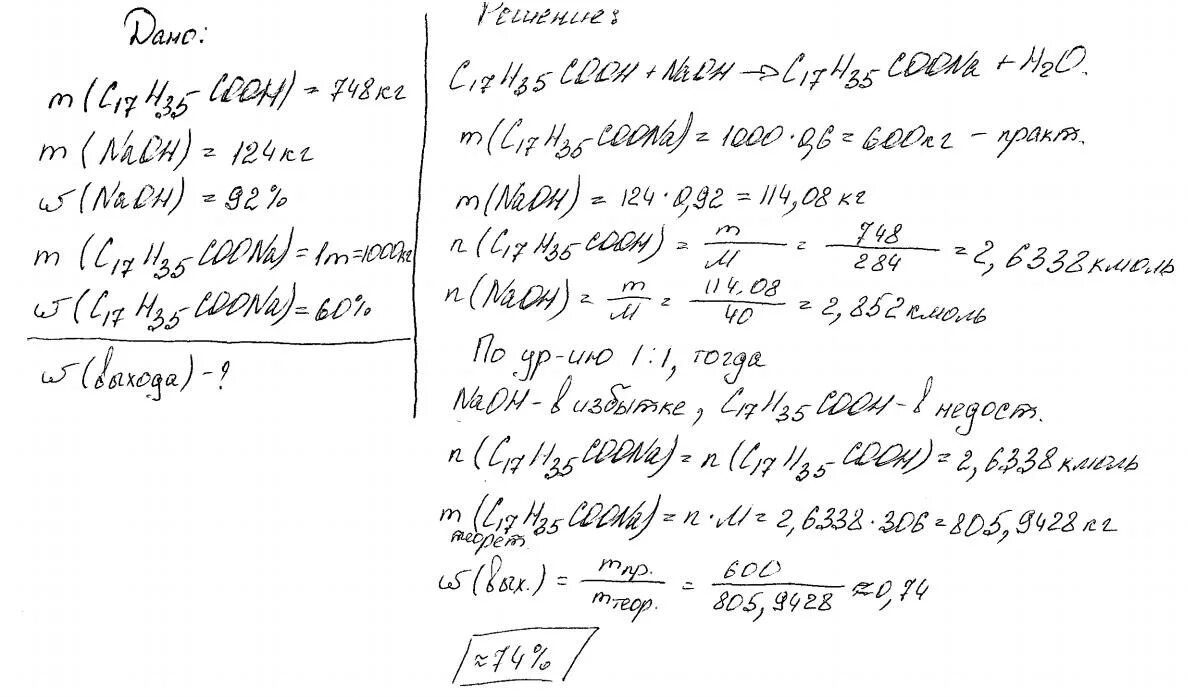 Дано:
m (C17H35COOH) = 748 кг
m (NaOH) = 124 кг
w (NaOH) = 92%
m (C17H35COONa) = 1т = 1000кг
w (C17H35COONa) = 60%
w (выхода) - ?
Решение:
C17H35COOH + NaOH → C17H35COONa + H2O.
m (C17H35COONa) = 1000 · 0,6 = 600 кг - практ.
m (NaOH) = 124 · 0,92 = 114,08 кг
n (C17H35COOH) = m/M = 748/284 = 2,6338 кмоль
n (NaOH) = m/M = 114.08/40 = 2,852 кмоль
По ур-ию 1:1, тогда
NaOH - в избытке, C17H35COOH - в недост.
n (C17H35COONa) = n (C17H35COOH) = 2,6338 кмоль
m теорет. (C17H35COONa) = n · M = 2,6338 · 306 = 805,9428 кг
w (вых.) = mпр./mтеор. = 600/805,9428 ≈ 0,74
≈ 74%